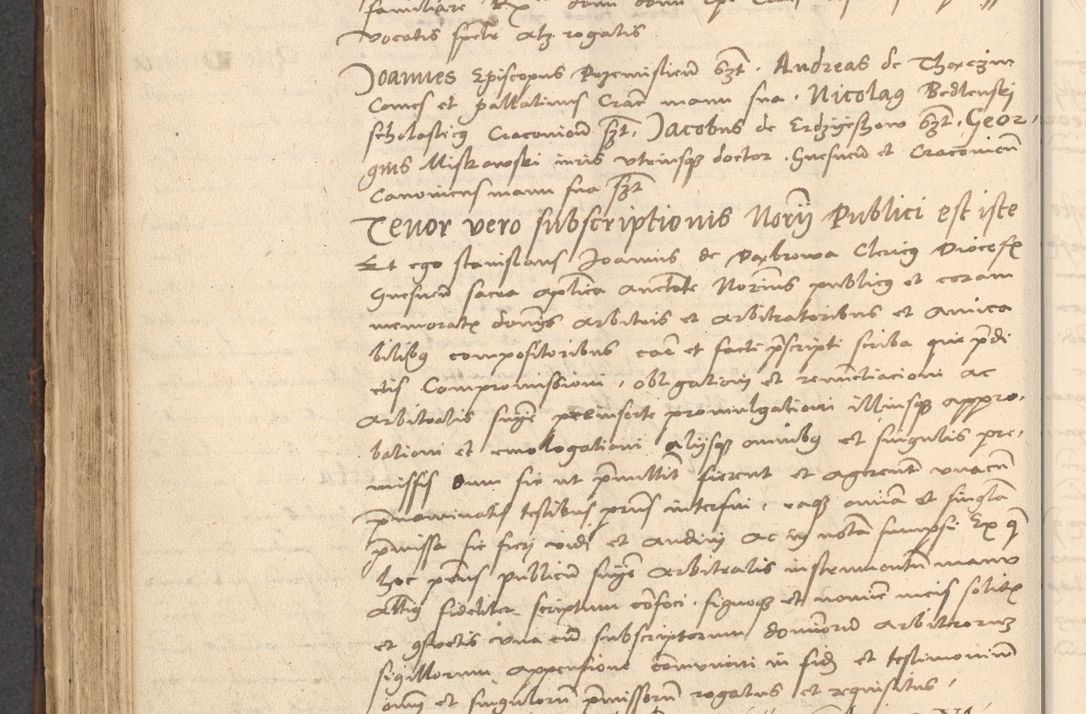 vocatis specialiter atque rogatis
Joannes Episcopus Premislien sszt. Andreas de Thąnczin
Comes et pallatinus Crac manu sua. Nicolaus Bedlenski
scholasticus Cracovien sszt, Jacobus de Erdzyesszow sszt, Geor-
gius Miskowski iuris utriusque doctor. Gnesnen et Cracovien
Canonicus manu sua sszt
Tenor vero subscriptionis Norij Publici est iste
Et ego Stanislaus Joannis de Dąbrowa Clericus Diocesis
Gnesnen sacra aplica auctete Norius publicus et coram
memoratis dominis arbitris et arbitratoribus et amica
bilibus compositoribus cae et facti prescripti scriba quia predi
ctis Compromissioni, obligationi et renuctiacioni ac
arbitralis snie preinserte promulgationi illiusque appro-
bationi et emologationi aliisque omnibus et singulis pre-
missis dum sic ut premittitur fierent et agerent unacum
prenominatis testibus prns interfui, eaque omia et singla
premissa sic fieri vidi et audivi ac in notam sumpsi Ex quo
hoc prens publicum snie arbitralis instrumentum manu
alterius fideliter scriptum confeci, signoque et nomine meis solitis
et consuetis una cum subscriptorum dominorum arbitrorum
sigillorum appensione communivi in fidem et testimonium
omium et singulorum premissorum rogatus et requisitus.